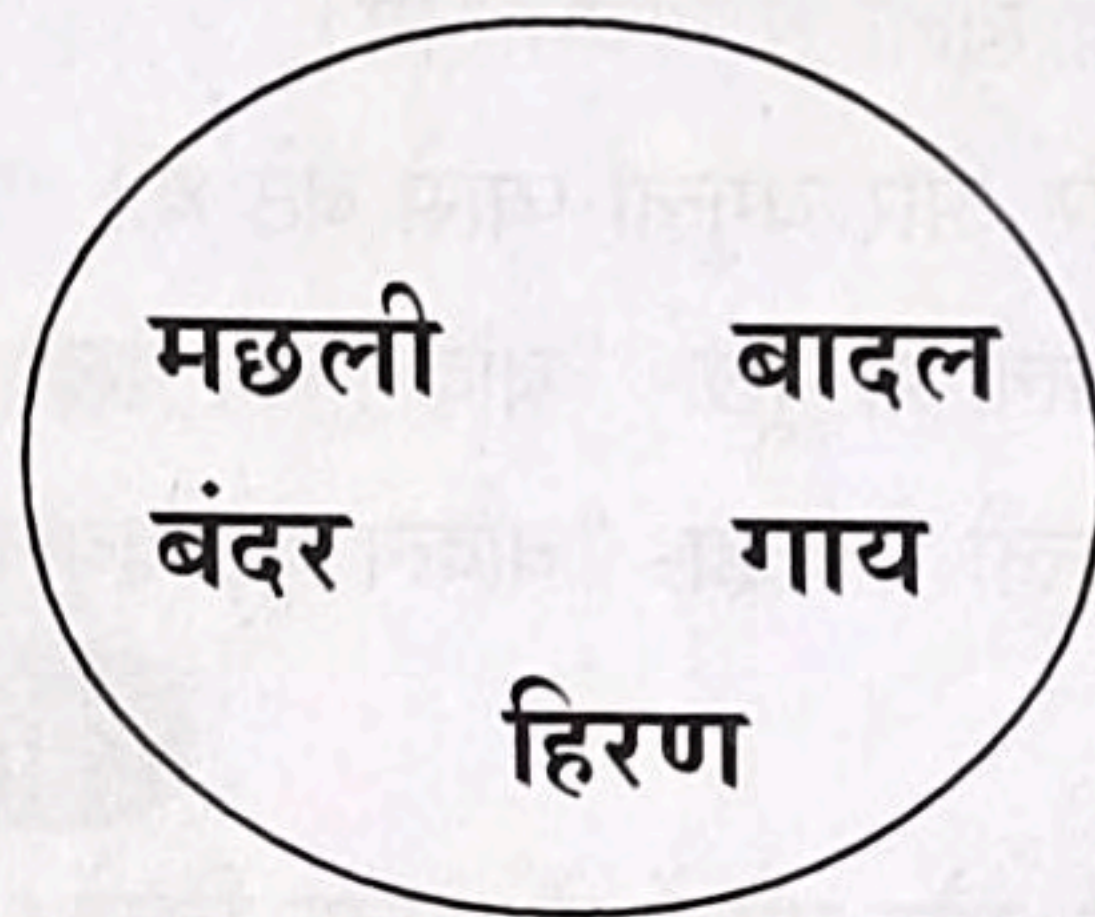 मछली बादल
बंदर गाय
हिरण